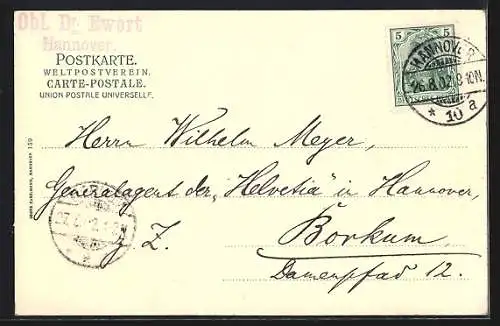 Obl. Dr. Ewort
Hannover.
POSTKARTE.
WELTPOSTVEREIN.
CARTE-POSTALE.
UNION POSTALE UNIVERSELLE.
5 5
HANNOVER
26.8.02.8-10N.
* 10 a
Herrn Wilhelm Meyer,
Generalagent der „Helvetia" in Hannover,
z. Z. Borkum.
Damenpfad 12.